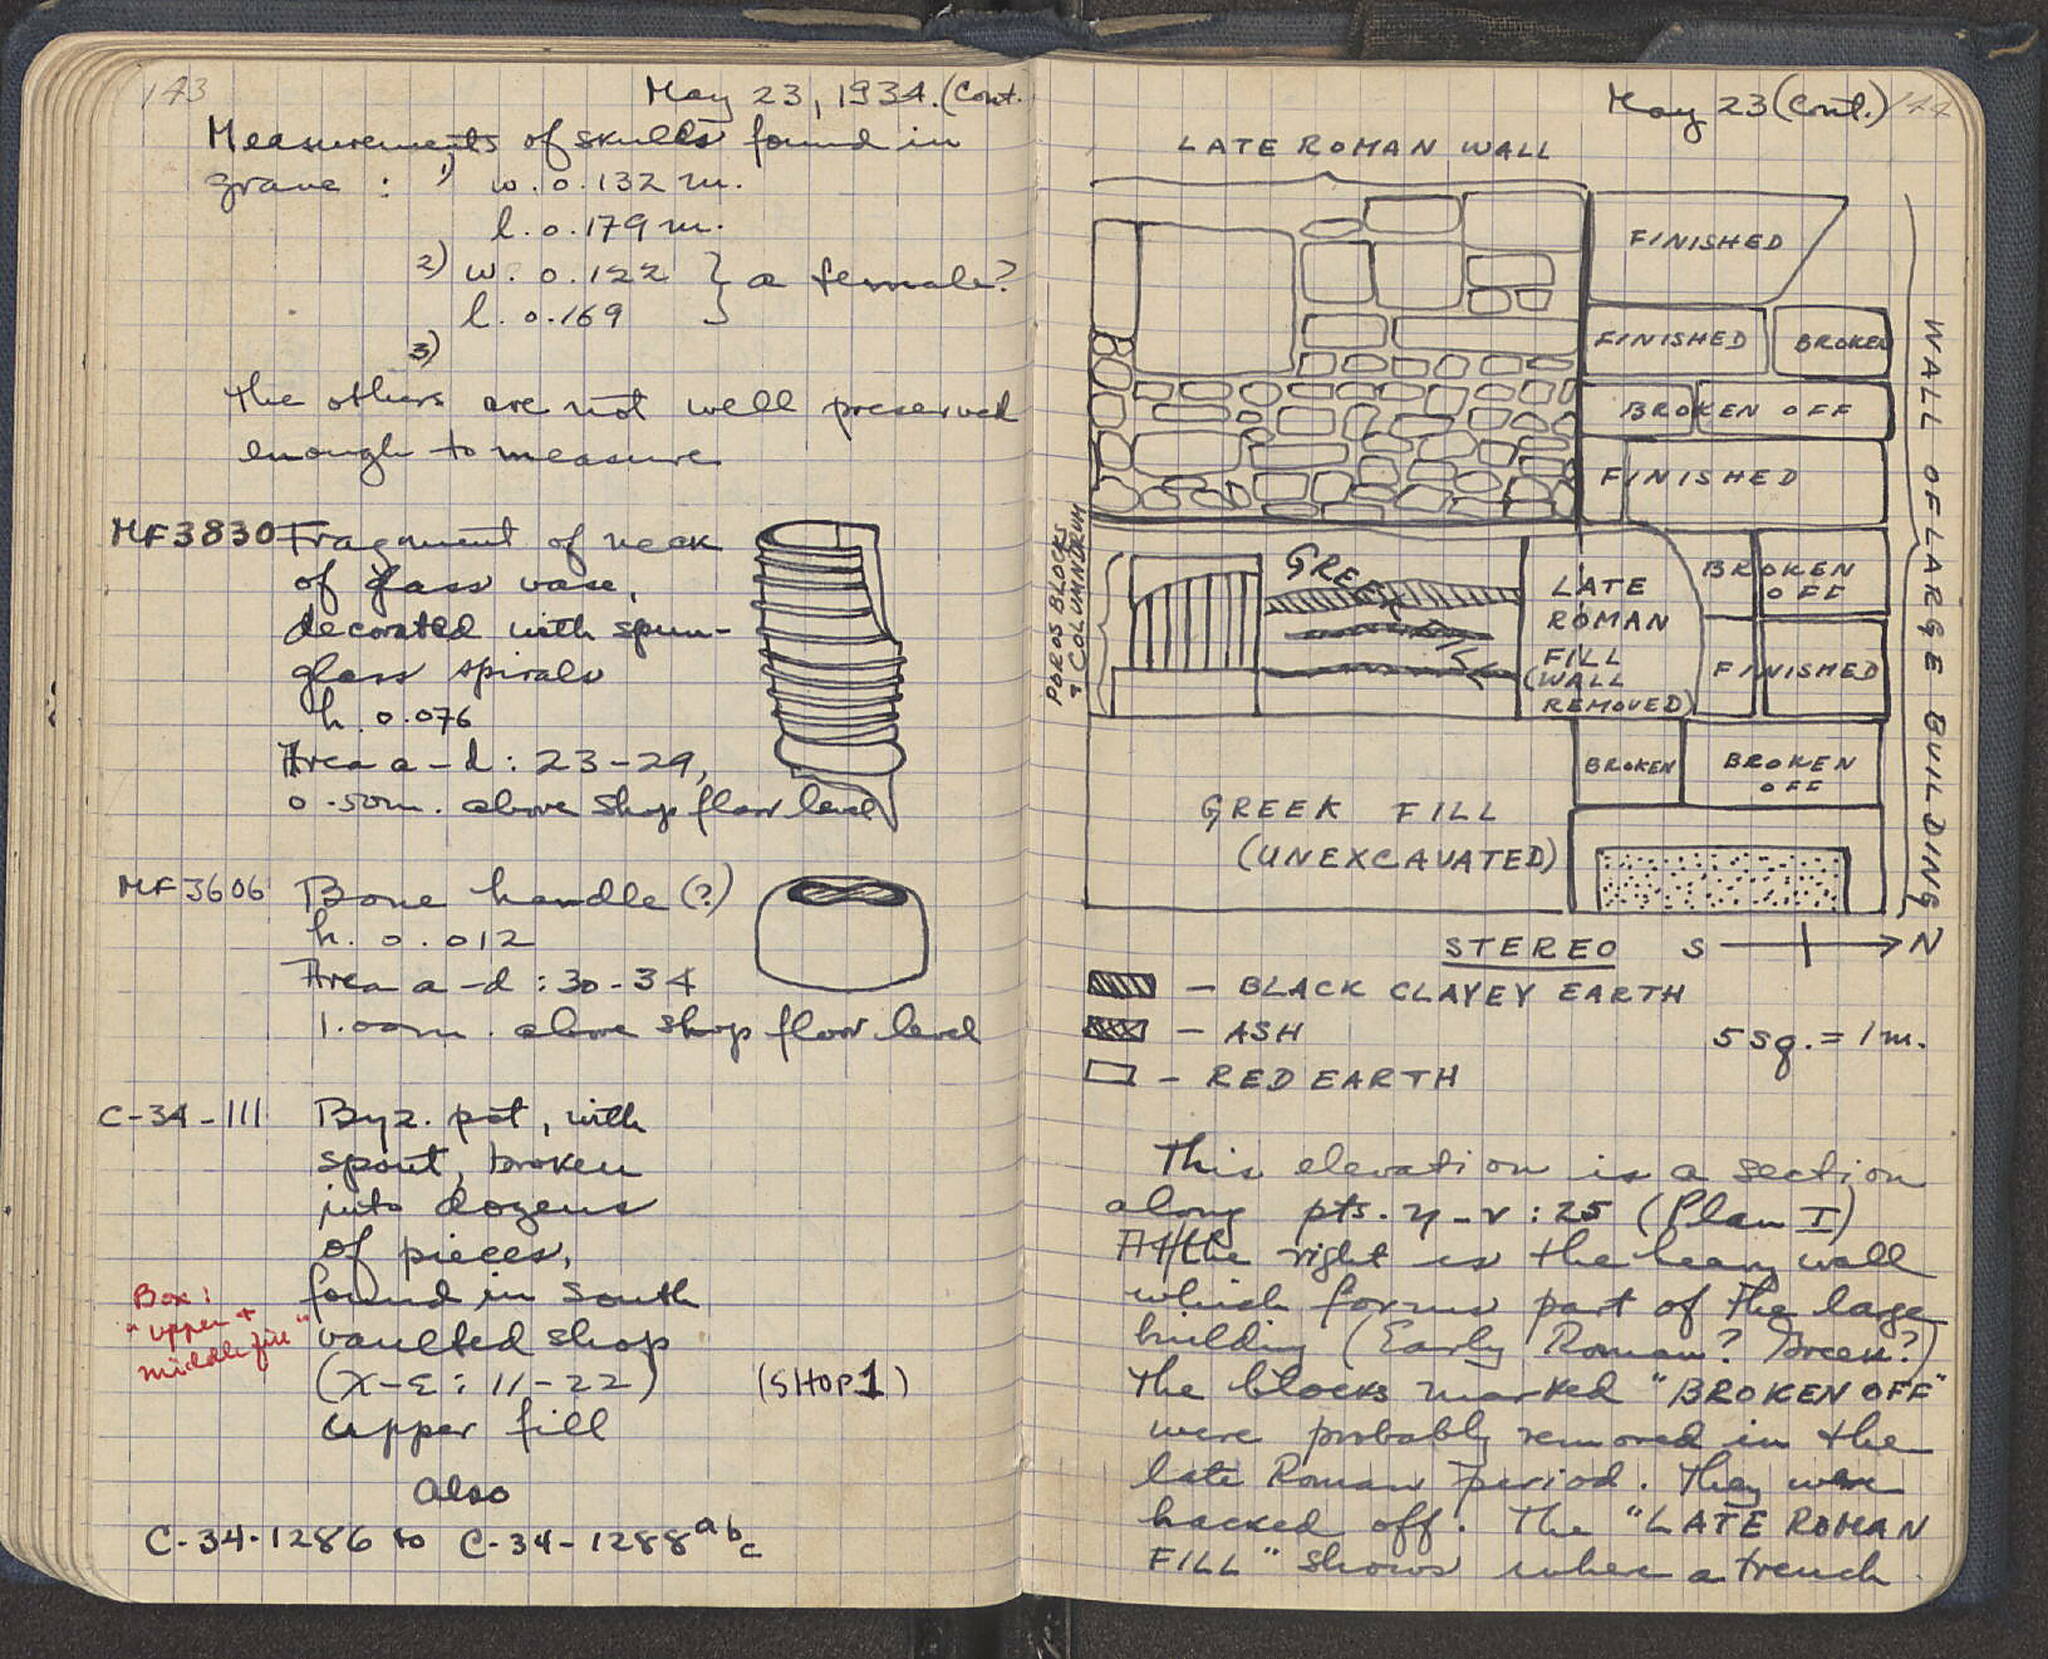 143
May 23, 1934. (Cont.
Measurements of skulls found in
grave : 1) w. 0.132 m.
l. 0.179 m.
2) w. 0.122 } a female?
l. 0.169
3)
the others are not well preserved
enough to measure
MF3830 Fragment of neck
of glass vase,
decorated with spun-
glass spirals
h. 0.076
Area a-d: 23-29,
0.50m. above shop floor level
MF3606 Bone handle (?)
h. 0.012
Area a-d: 30-34
1.00m. above shop floor level
C-34-111 Byz. pot, with
spout, broken
into dozens
of pieces,
found in south
vaulted shop
(X-Σ: 11-22) (SHOP 1)
upper fill
Box:
"upper +
middle fill"
also
C-34-1286 to C-34-1288 a b c
May 23 (Cont.) 144
LATE ROMAN WALL
FINISHED
FINISHED BROKEN
BROKEN OFF
FINISHED
WALL OF LARGE BUILDING
POROS BLOCKS
& COLUMN DRUM
GREEK
LATE
ROMAN
FILL
(WALL
REMOVED)
BROKEN
OFF
FINISHED
BROKEN
BROKEN
OFF
GREEK FILL
(UNEXCAVATED)
STEREO S N
– BLACK CLAYEY EARTH
– ASH 5 sq. = 1 m.
– RED EARTH
This elevation is a section
along pts. η-ν: 25 (Plan I)
At the right is the heavy wall
which forms part of the large
building (Early Roman? Greek?)
The blocks marked "BROKEN OFF"
were probably removed in the
late Roman period. They were
hacked off. The "LATE ROMAN
FILL" shows where a trench